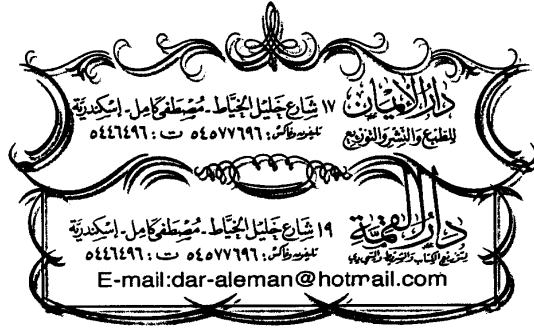 دار الإيمان
للطبع والنشر والتوزيع
١٧ شارع خليل الخياط ـ مصطفى كامل ـ إسكندرية
تليفون وفاكس: ٥٤٥٧٧٦٩٦ ت: ٥٤٤٦٤٩٦
دار القمة
لتوزيع الكتاب والشريط
١٩ شارع خليل الخياط ـ مصطفى كامل ـ إسكندرية
تليفون وفاكس: ٥٤٥٧٧٦٩٦ ت: ٥٤٤٦٤٩٦
E-mail:dar-aleman@hotmail.com